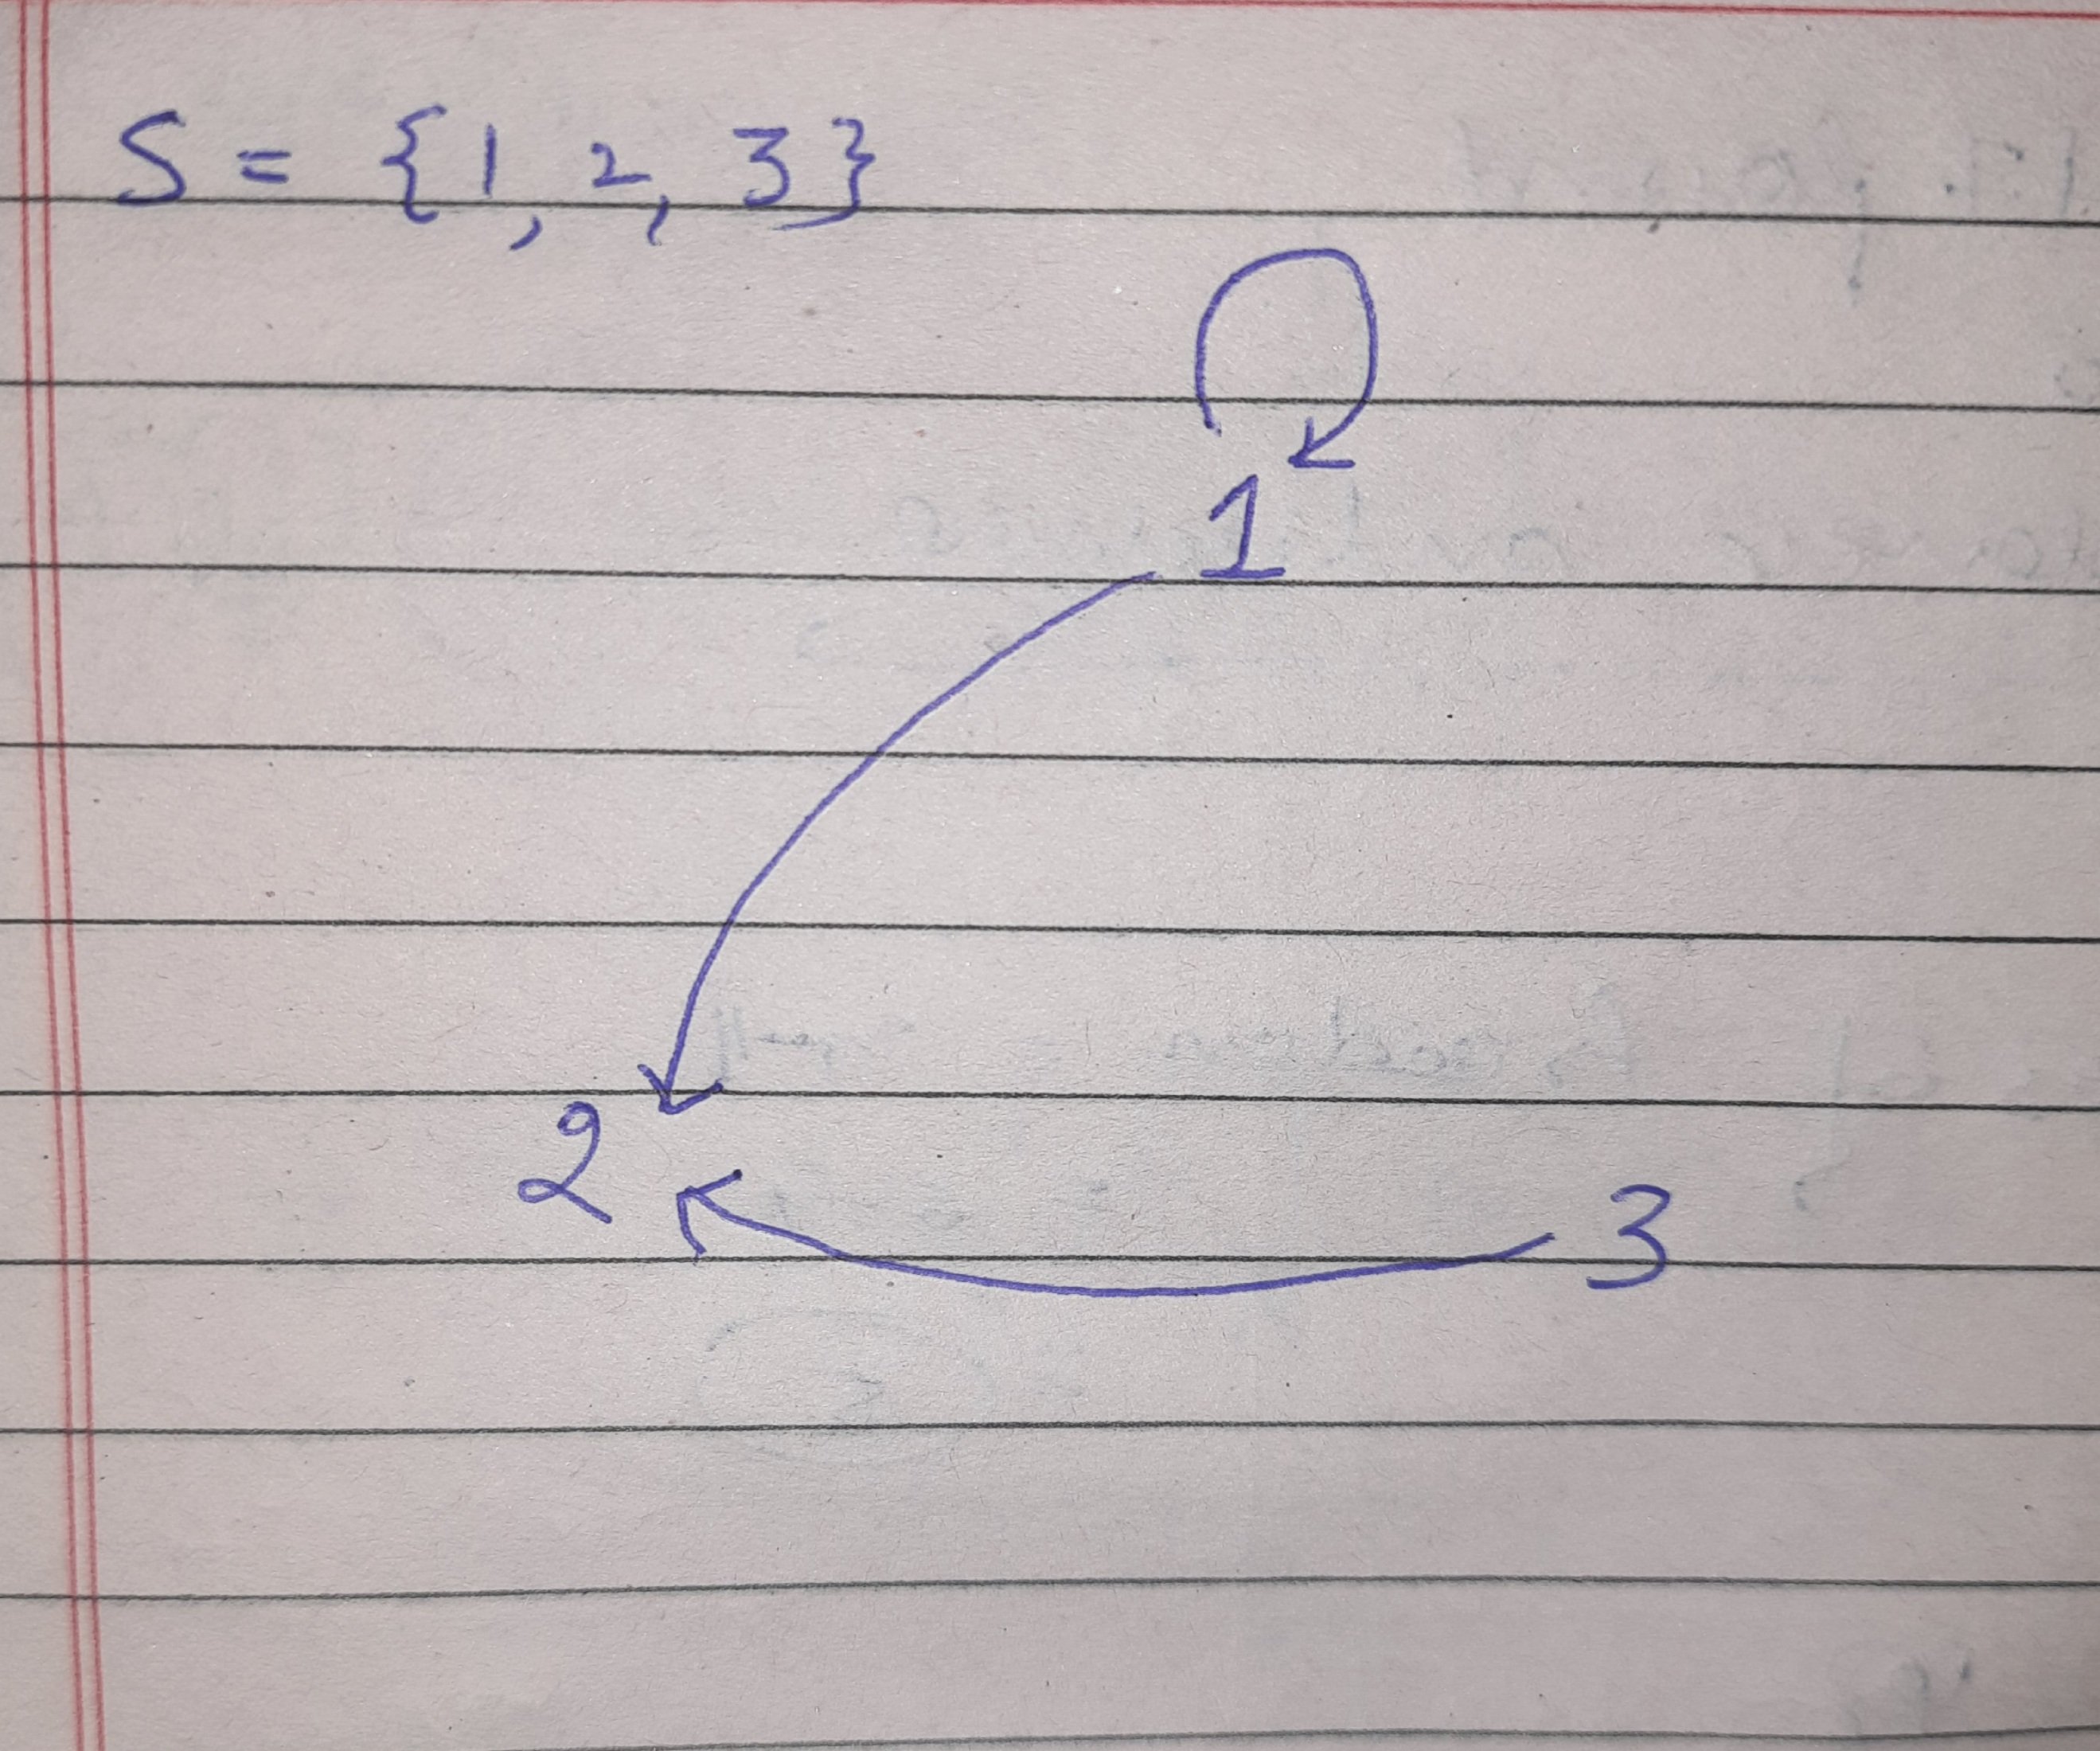 S = {1, 2, 3}
1
2
3